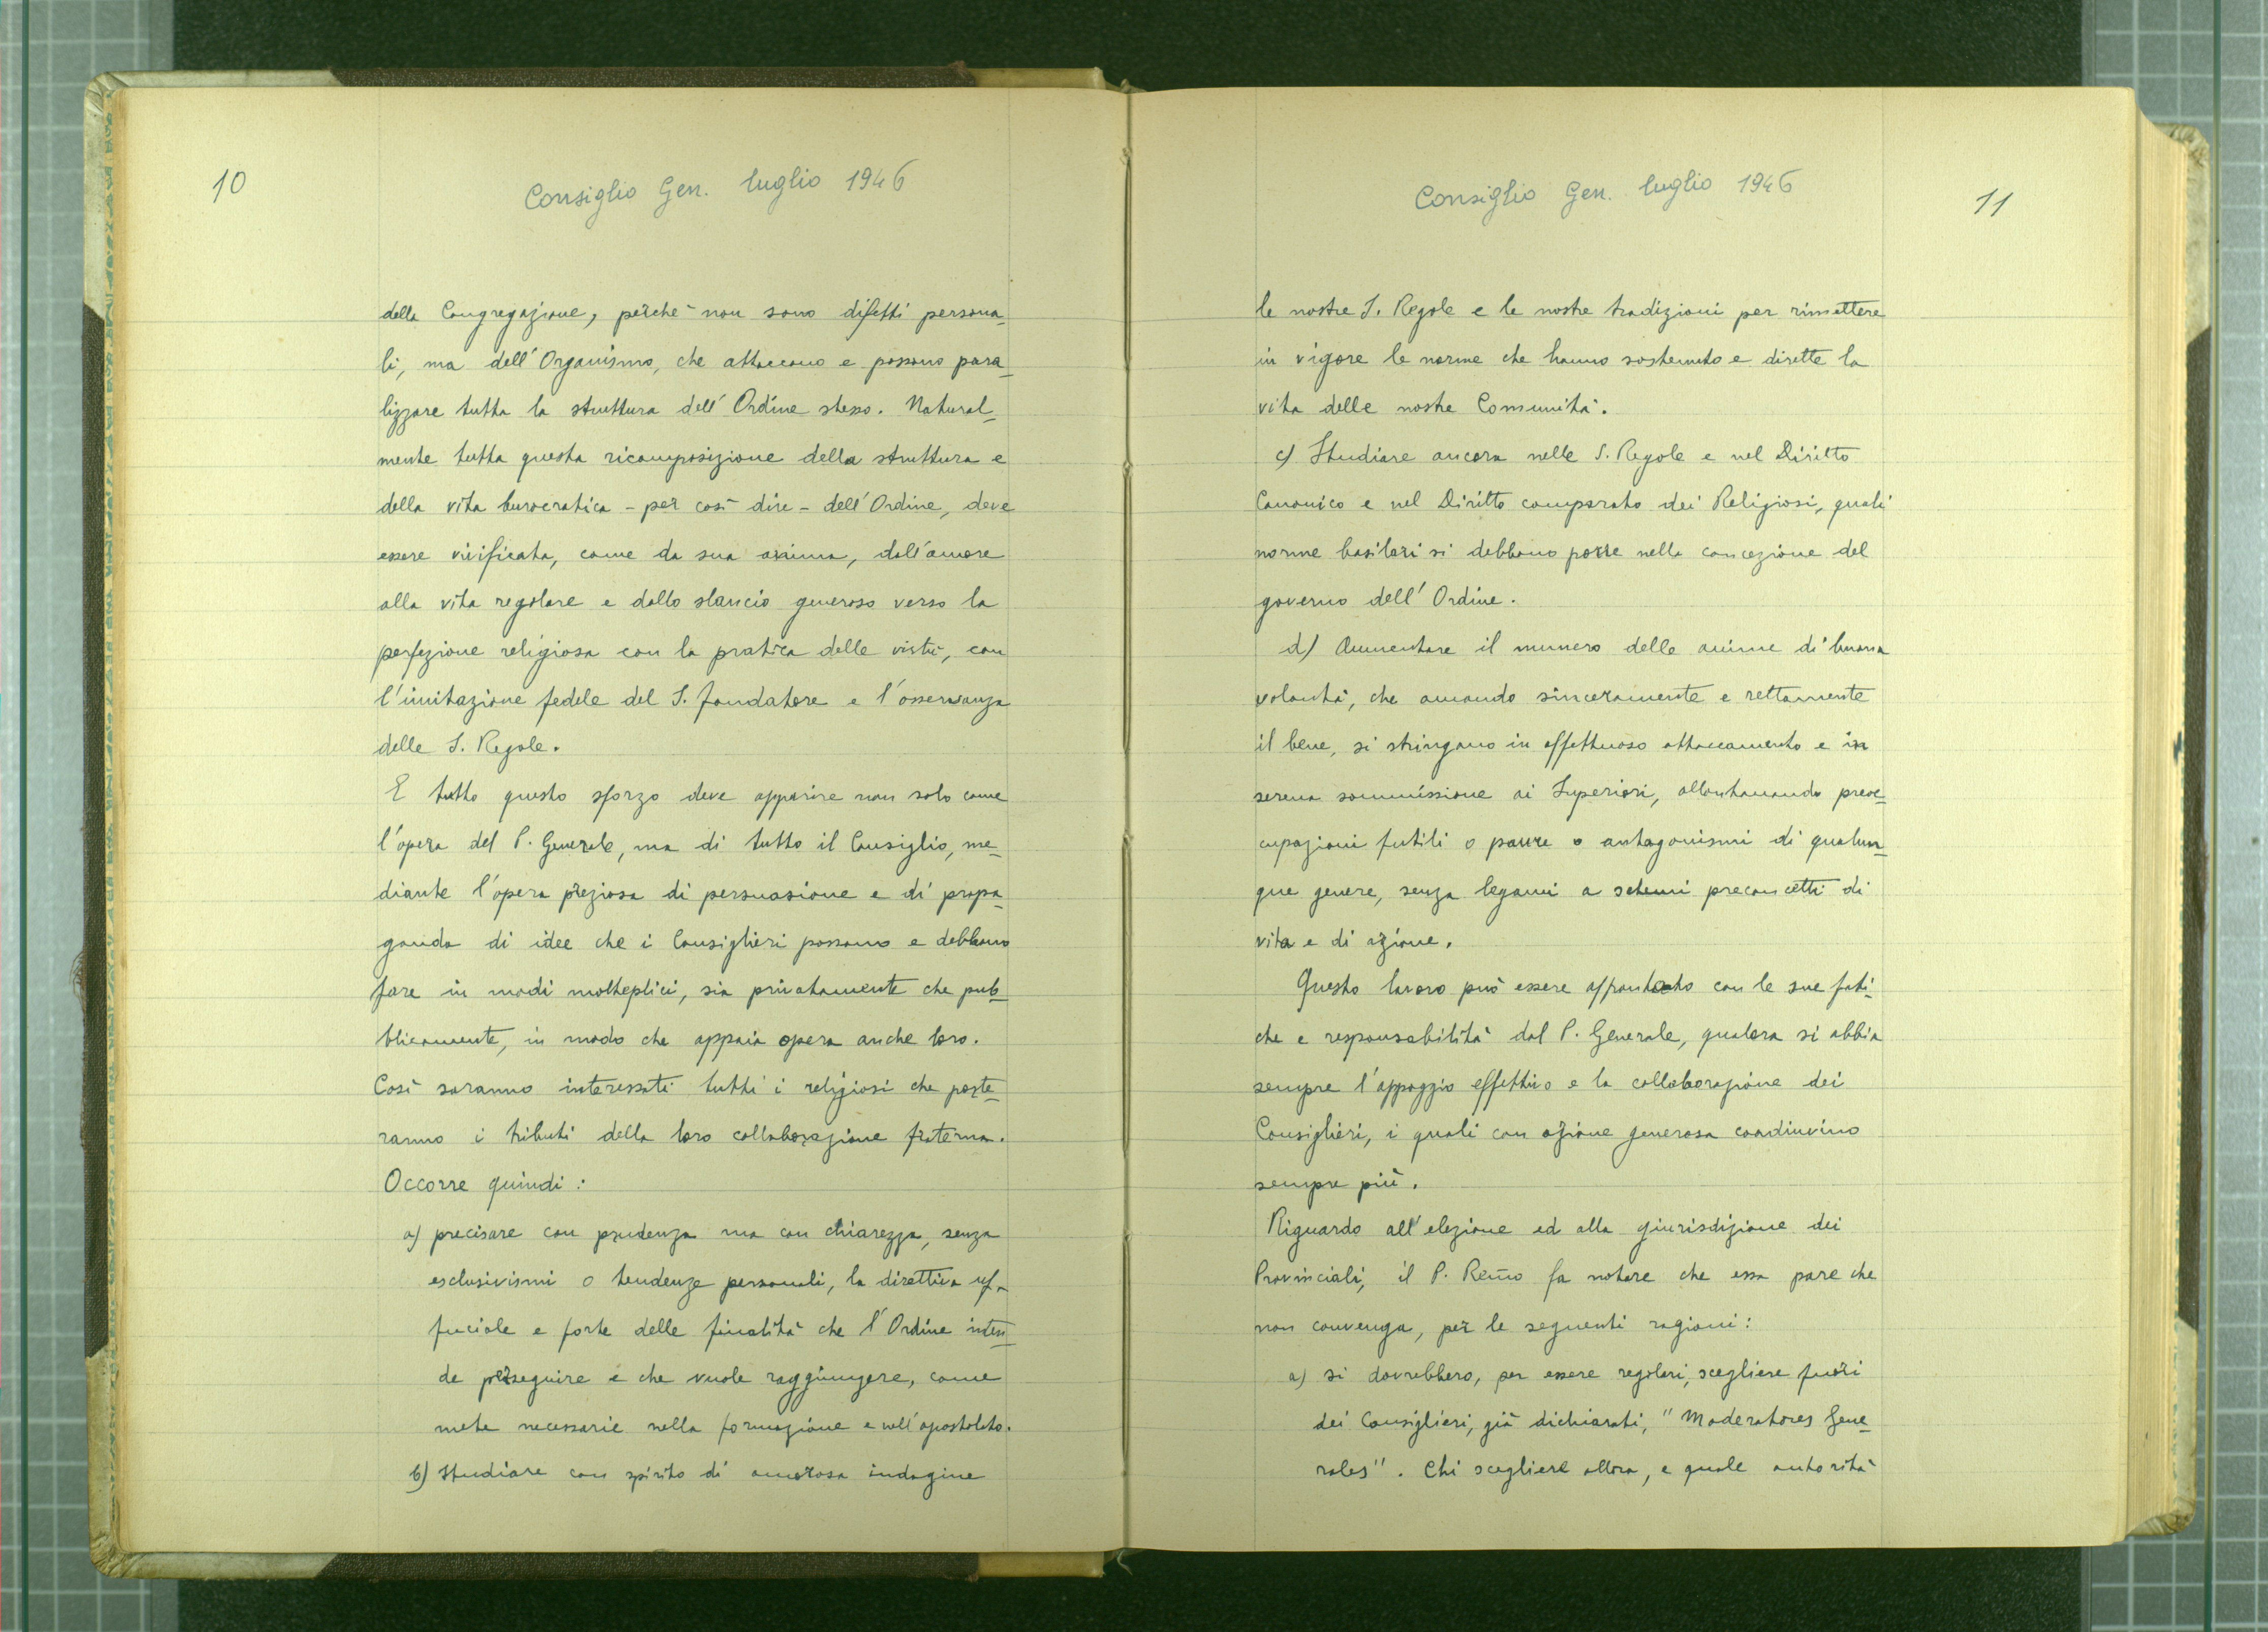 10
Consiglio Gen. luglio 1946
della Congregazione, perchè non sono difetti persona_
li, ma dell'Organismo, che attaccano e possono para_
lizzare tutta la struttura dell'Ordine stesso. Natural_
mente tutta questa ricomposizione della struttura e
della vita burocratica - per così dire - dell'Ordine, deve
essere vivificata, come da sua anima, dall'amore
alla vita regolare e dallo slancio generoso verso la
perfezione religiosa con la pratica delle virtù, con
l'imitazione fedele del S. Fondatore e l'osservanza
delle S. Regole.
E tutto questo sforzo deve apparire non solo come
l'opera del P. Generale, ma di tutto il Consiglio, me_
diante l'opera preziosa di persuasione e di propa_
ganda di idee che i Consiglieri possono e debbono
fare in modi molteplici, sia privatamente che pub_
blicamente, in modo che appaia opera anche loro.
Così saranno interessati tutti i religiosi che porte_
ranno i tributi della loro collaborazione fraterna.
Occorre quindi:
a) precisare con prudenza ma con chiarezza, senza
esclusivismi o tendenze personali, la direttiva uf_
ficiale e forte delle finalità che l'Ordine inten_
de perseguire e che vuole raggiungere, come
mete necessarie nella formazione e nell'apostolato.
b) Studiare con spirito di amorosa indagine
Consiglio Gen. luglio 1946
11
le nostre S. Regole e le nostre tradizioni per rimettere
in vigore le norme che hanno sostenuto e dirette la
vita delle nostre Comunità.
c) Studiare ancora nelle S. Regole e nel Diritto
Canonico e nel Diritto comparato dei Religiosi, quali
norme basilari si debbano porre nella concezione del
governo dell'Ordine.
d) Aumentare il numero delle anime di buona
volontà, che amando sinceramente e rettamente
il bene, si stringano in affettuoso attaccamento e in
serena sommissione ai Superiori, allontanando preoc_
cupazioni futili o paure o antagonismi di qualun_
que genere, senza legami a schemi preconcetti di
vita e di azione.
Questo lavoro può essere affrontato con le sue fati_
che e responsabilità dal P. Generale, qualora si abbia
sempre l'appoggio effettivo e la collaborazione dei
Consiglieri, i quali con azione generosa coadiuvino
sempre più.
Riguardo all'elezione ed alla giurisdizione dei
Provinciali, il P. Rev̄mo fa notare che essa pare che
non convenga, per le seguenti ragioni:
a) si dovrebbero, per essere regolari, scegliere fuori
dei Consiglieri, già dichiarati, "Moderatores Gene_
rales". Chi scegliere allora, e quale autorità